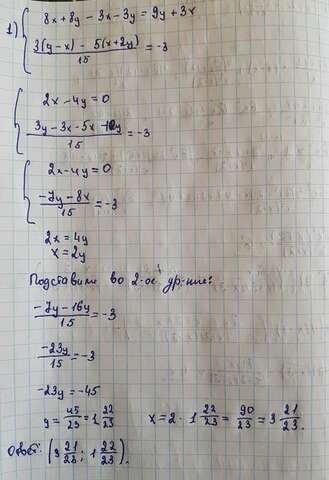 1) { 8x + 8y - 3x - 3y = 9y + 3x
3(y-x) - 5(x+2y) / 15 = -3
{ 2x - 4y = 0
3y - 3x - 5x - 10y / 15 = -3
{ 2x - 4y = 0
-7y - 8x / 15 = -3
2x = 4y
x = 2y
Подставим во 2-ое ур-ние:
-7y - 16y / 15 = -3
-23y / 15 = -3
-23y = -45
y = 45/23 = 1 22/23 x = 2 · 1 22/23 = 90/23 = 3 21/23.
Ответ: (3 21/23; 1 22/23).